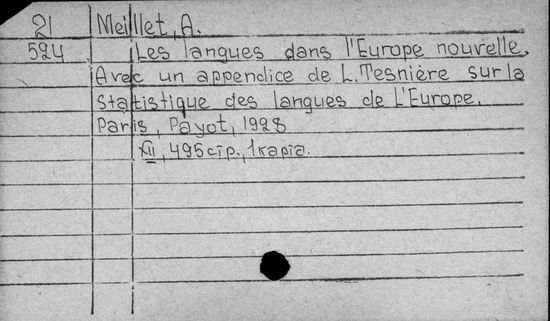 21 Meillet, A.
524 Les langues dans l'Europe nouvelle.
Avec un appendice de L. Tesnière sur la
statistique des langues de L'Europe.
Paris, Payot, 1928
XII, 495 стр., 1 карта.